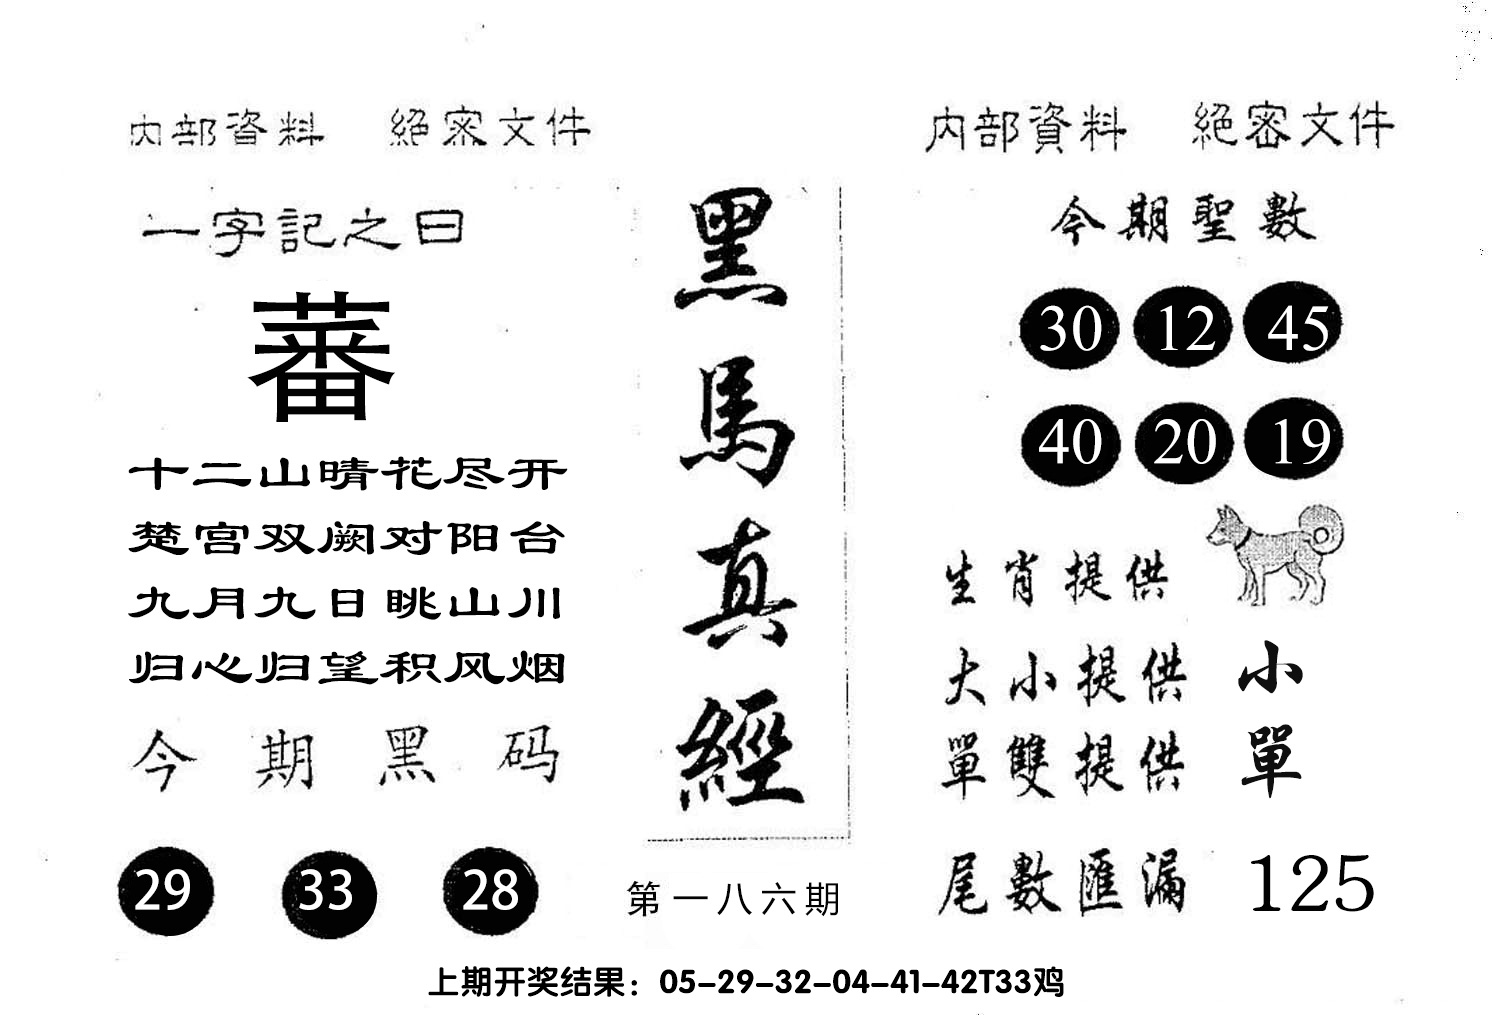 内部資料 絕密文件
一字記之曰
蕃
十二山晴花尽开
楚宫双阙对阳台
九月九日眺山川
归心归望积风烟
今期黑码
29 33 28
黑馬真經
第一八六期
内部資料 絕密文件
今期聖數
30 12 45
40 20 19
生肖提供
大小提供 小
單雙提供 單
尾數匯漏 125
上期开奖结果：05-29-32-04-41-42T33鸡